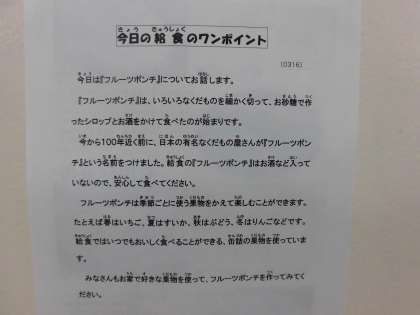 今日の給食のワンポイント
(0316)
今日は『フルーツポンチ』についてお話します。
『フルーツポンチ』は、いろいろなくだものを細かく切って、お砂糖で作
ったシロップとお酒をかけて食べたのが始まりです。
今から100年近く前に、日本の有名なくだもの屋さんが『フルーツポン
チ』という名前をつけました。給食の『フルーツポンチ』はお酒など入って
いないので、安心して食べてください。
フルーツポンチは季節ごとに使う果物をかえて楽しむことができます。
たとえば春はいちご、夏はすいか、秋はぶどう、冬はりんごなどです。
給食ではいつでもおいしく食べることができる、缶詰の果物を使っていま
す。
みなさんもお家で好きな果物を使って、フルーツポンチを作ってみてく
ださい。